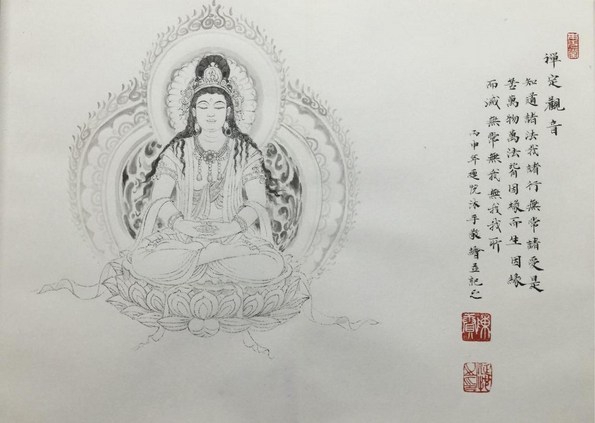 禪定觀音
知道諸法我諸行無常諸受是
苦萬物萬法皆因緣而生因緣
而滅無常無我無我我所
丙申年繪並記之